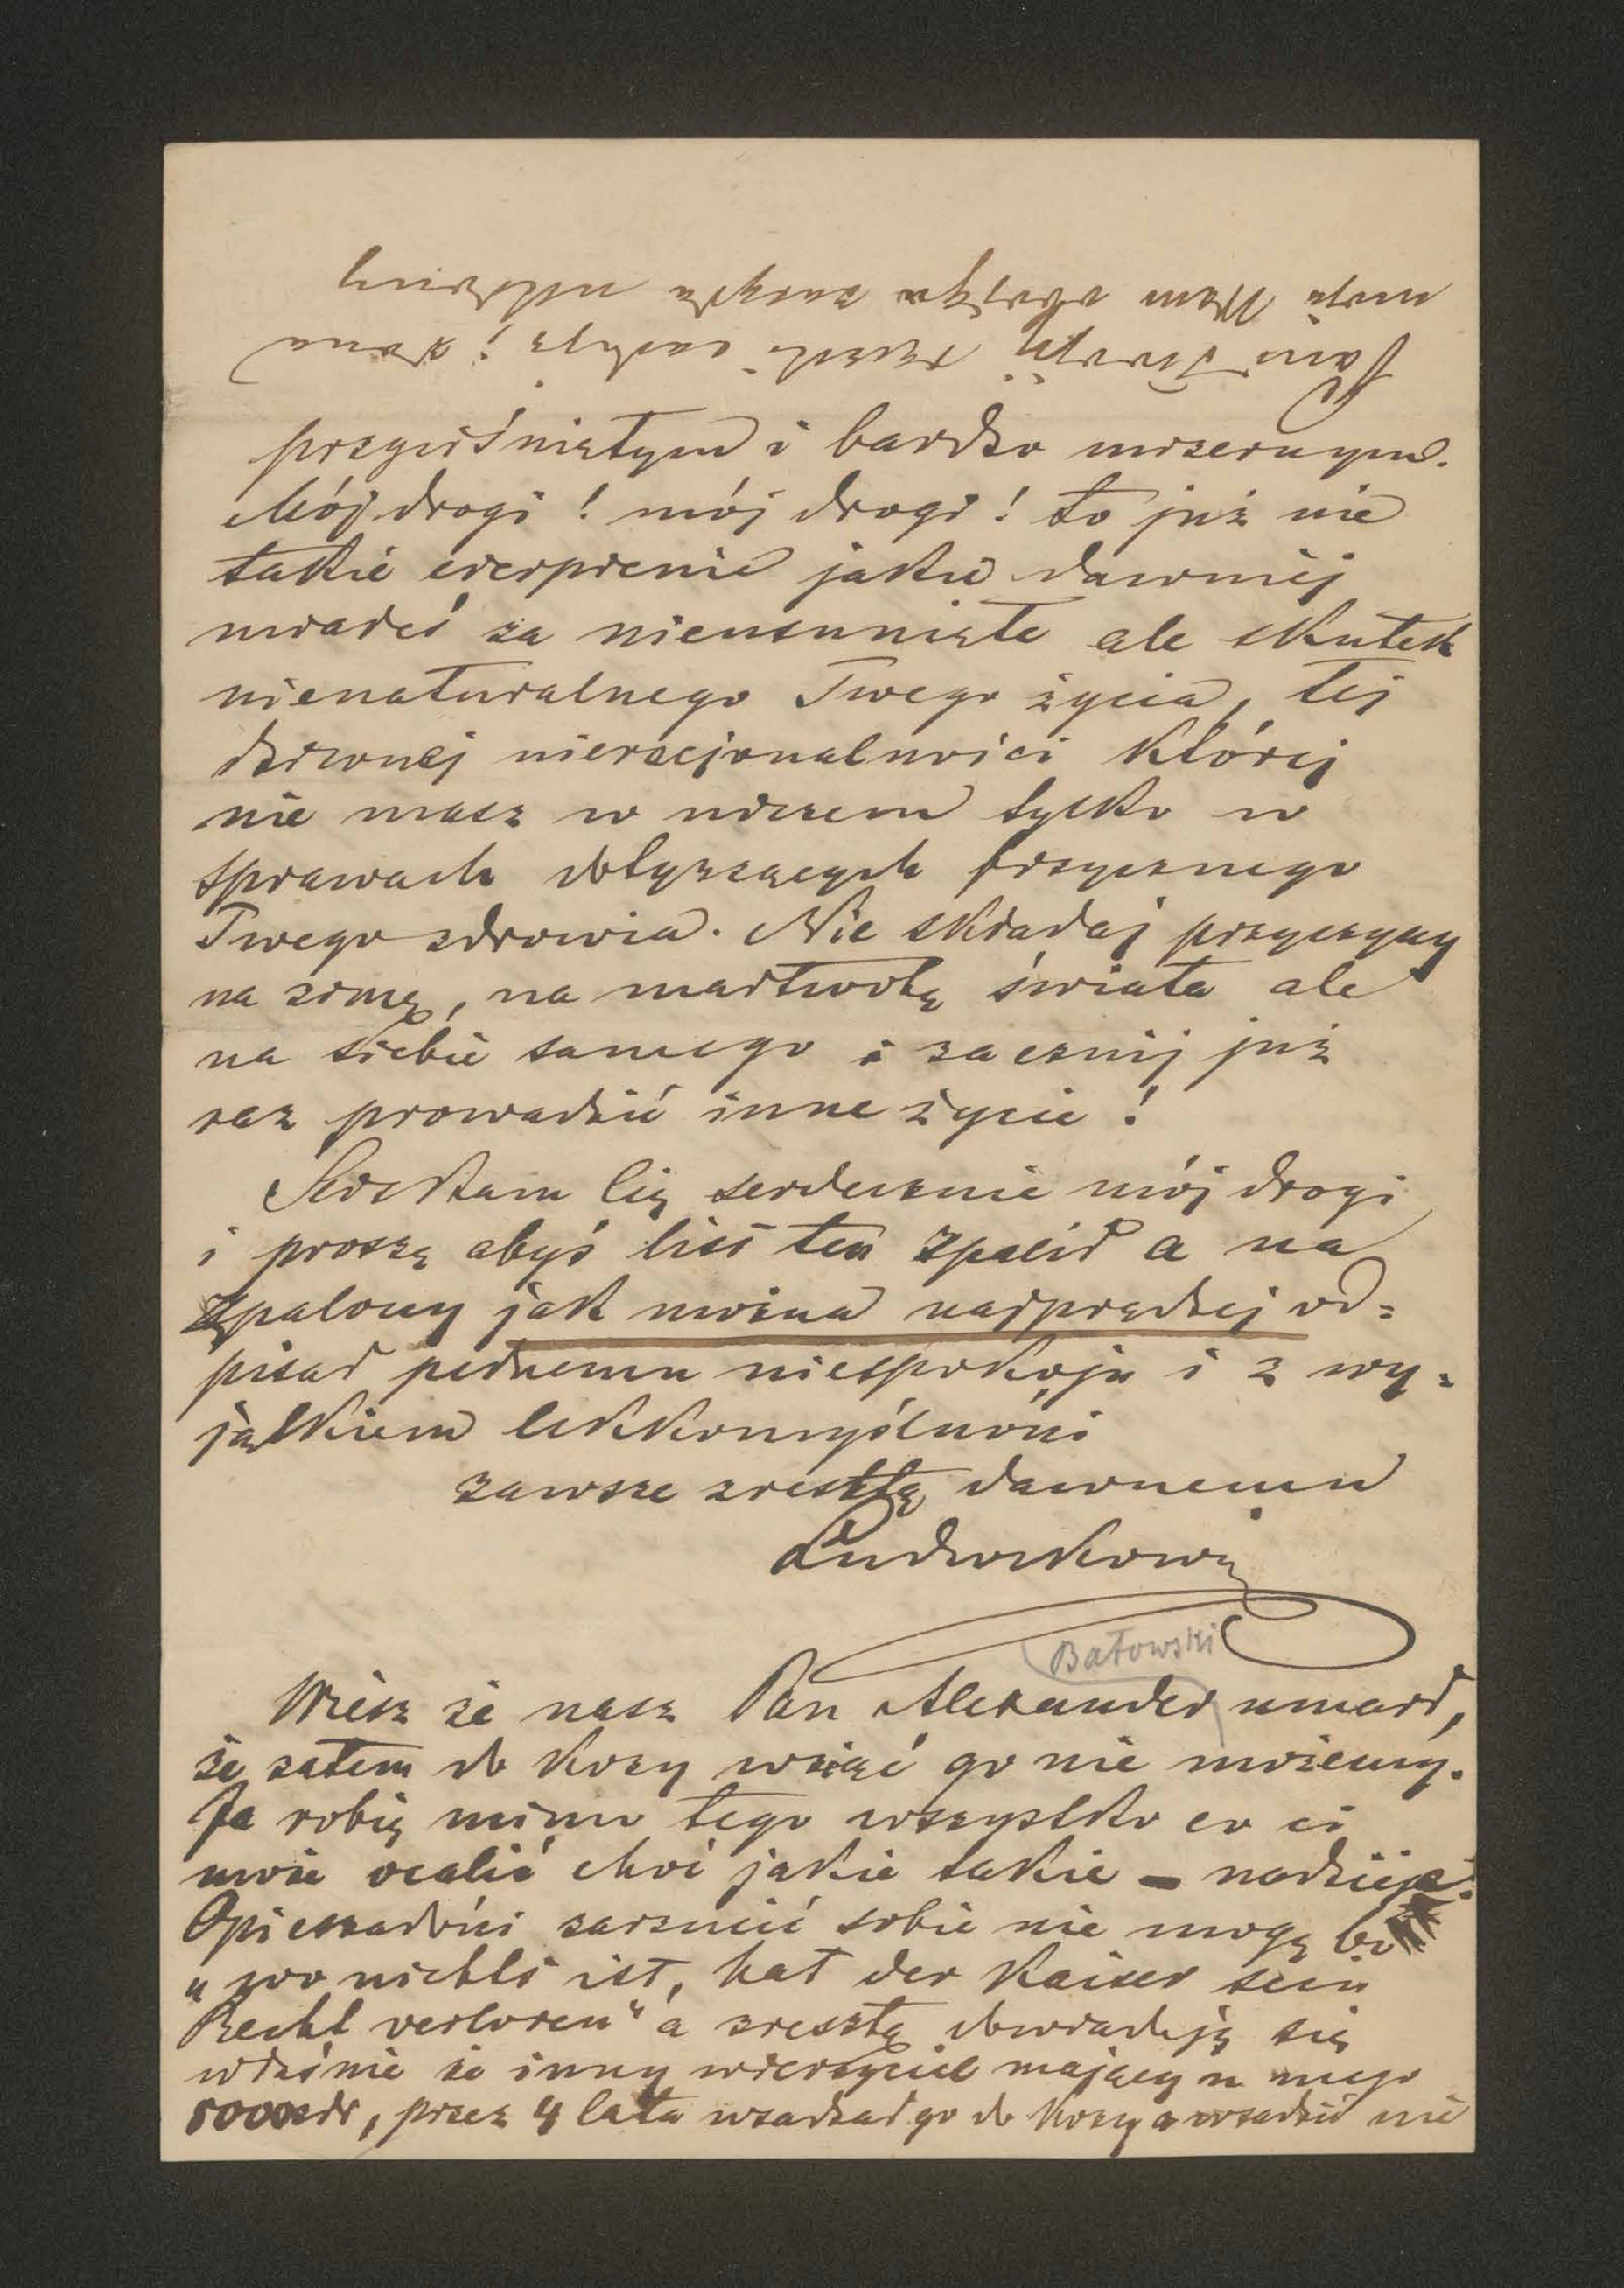 Pani Twojej rączki całuję i żona
moja Wam obojgu zasyła ukłony
przyciśniętym i bardzo mizernym.
Mój drogi! mój drogi! to już nie
takie cierpienie jakie dawniej
miałeś za nieusunięte ale skutek
nienaturalnego Twego życia, tej
dziwnej nieracjonalności której
nie masz w niczem tylko w
sprawach dotyczących fizycznego
Twego zdrowia. Nie składaj przyczyny
na zimę, na martwotę świata ale
na siebie samego i zacznij już
raz prowadzić inne życie!
Ściskam Cię serdecznie mój drogi
i proszę abyś list ten zpalił a na
zpalony jak można najprędzej od=
pisał pełnemu niespokoju i z wy=
jątkiem lekkomyślności
zawsze zresztą dawnemu
Ludwikowi
Batowski
Wiesz że nasz Pan Alexander umarł,
że zatem do kozy wziąć go nie możemy.
Ja robię mimo tego wszystko co ci
może ocalić choć jakie takie – nadzieje.
Opieszałości zarzucić sobie nie mogę bo
"wo nichts ist, hat der Kaiser sein
Recht verloren" a zresztą dowiaduję się
właśnie że inny wierzyciel mający u niego
przez 4 lata wsadzał go do kozy a wsadzić nie